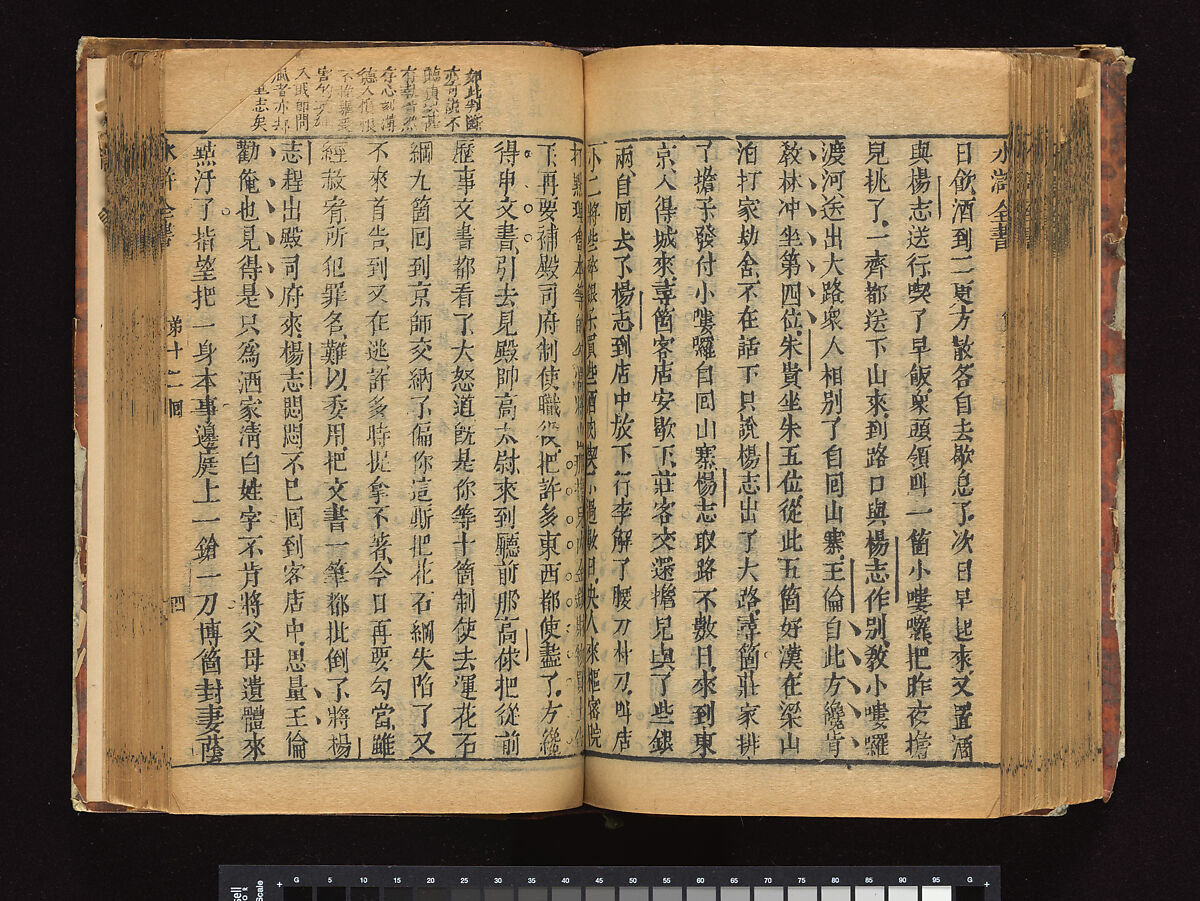 水滸全書
日飲酒到二更方散各自去歇息了次日早起來又置酒
與楊志送行喫了早飯衆頭領叫一箇小嘍囉把昨夜擔
兒挑了一齊都送下山來到路口與楊志作別教小嘍囉
渡河送出大路衆人相別了自囘山寨王倫自此方纔肯
教林冲坐第四位朱貴坐朱五位從此五箇好漢在梁山
泊打家劫舍不在話下只說楊志出了大路尋箇莊家挑
了擔子發付小嘍囉自囘山寨楊志取路不數日來到東
京入得城來尋箇客店安歇下莊客交還擔兒與了些銀
兩自囘去了楊志到店中放下行李解了腰刀朴刀叫店
小二將些碎銀子買些酒肉喫了過數日央人來樞密院
打點理會本等的勾當將
下再要補殿司府制使職役把許多東西都使盡了方纔
得申文書引去見殿帥高太尉來到廳前那高俅把從前
歷事文書都看了大怒道旣是你等十箇制使去運花石
綱九箇囘到京師交納了偏你這厮把花石綱失陷了又
不來首告到又在逃許多時捉拿不著今日再要勾當雖
經赦宥所犯罪名難以委用把文書一筆都批倒了將楊
志趕出殿司府來楊志悶悶不已囘到客店中思量王倫
勸俺也見得是只爲洒家淸白姓字不肯將父母遺體來
㸃汙了指望把一身本事邊庭上一鎗一刀博箇封妻蔭
水滸全書
第十二囘
四
如此判斷
亦可説不
有
存心刻薄
德人憤恨
人或即問
志矣
G 5 10 15 20 25 30 35 40 45 50 55 60 65 70 75 80 85 90 95 G